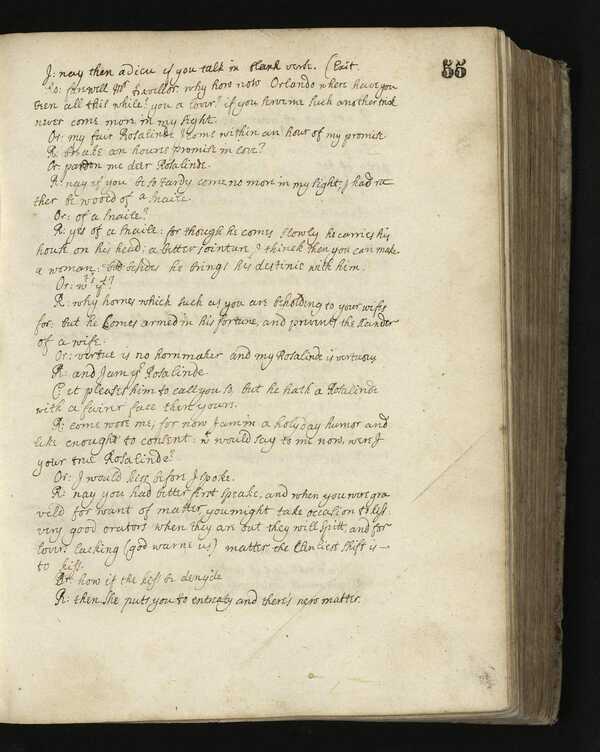 55
J: nay then adieu if you talk in blank verse. (Exit.
Ro: farewell Mr Travillor. why how now Orlando where have you
been all this while? you a lover? if you serve me such another trick
never come more in my sight.
Or: my fair Rosalinde I come within an hour of my promise
R: breake an houres promise in love?
Or: pardon me deer Rosalinde.
R: nay if you be so tardy come no more in my sight, I had ra
ther be wooed of a snaile.
Or: of a snaile?
R: yes of a snaile: for though he comes slowly he carries his
house on his head: a better jointure I thinck then you can make
a woman: besides he brings his destinie with him.
Or: wts yt?
R: why hornes which such as you are beholding to your wifes
for: but he comes armed in his fortune, and prevents the slander
of a wife.
Or: virtue is no hornmaker and my Rosalinde is virtuous
R: and I am yr Rosalinde
C: it pleases him to call you so, but he hath a Rosalinde
with a fairer face then yours.
R: come wooe me, for now I am in a holyday humor and
like enough to consent: wt would you say to me now, were I
your true Rosalinde?
Or: I would kiss before I spoke.
R: nay you had better first speake, and when you were gra
veld for want of matter, you might take occasion to kiss.
very good orators when they are out they will spitt, and for
lovers lacking (god warne us) matter the cleanliest shift is
to kiss.
Or: how if the kiss be denyde
R: then she puts you to entreaty and there's new matter.